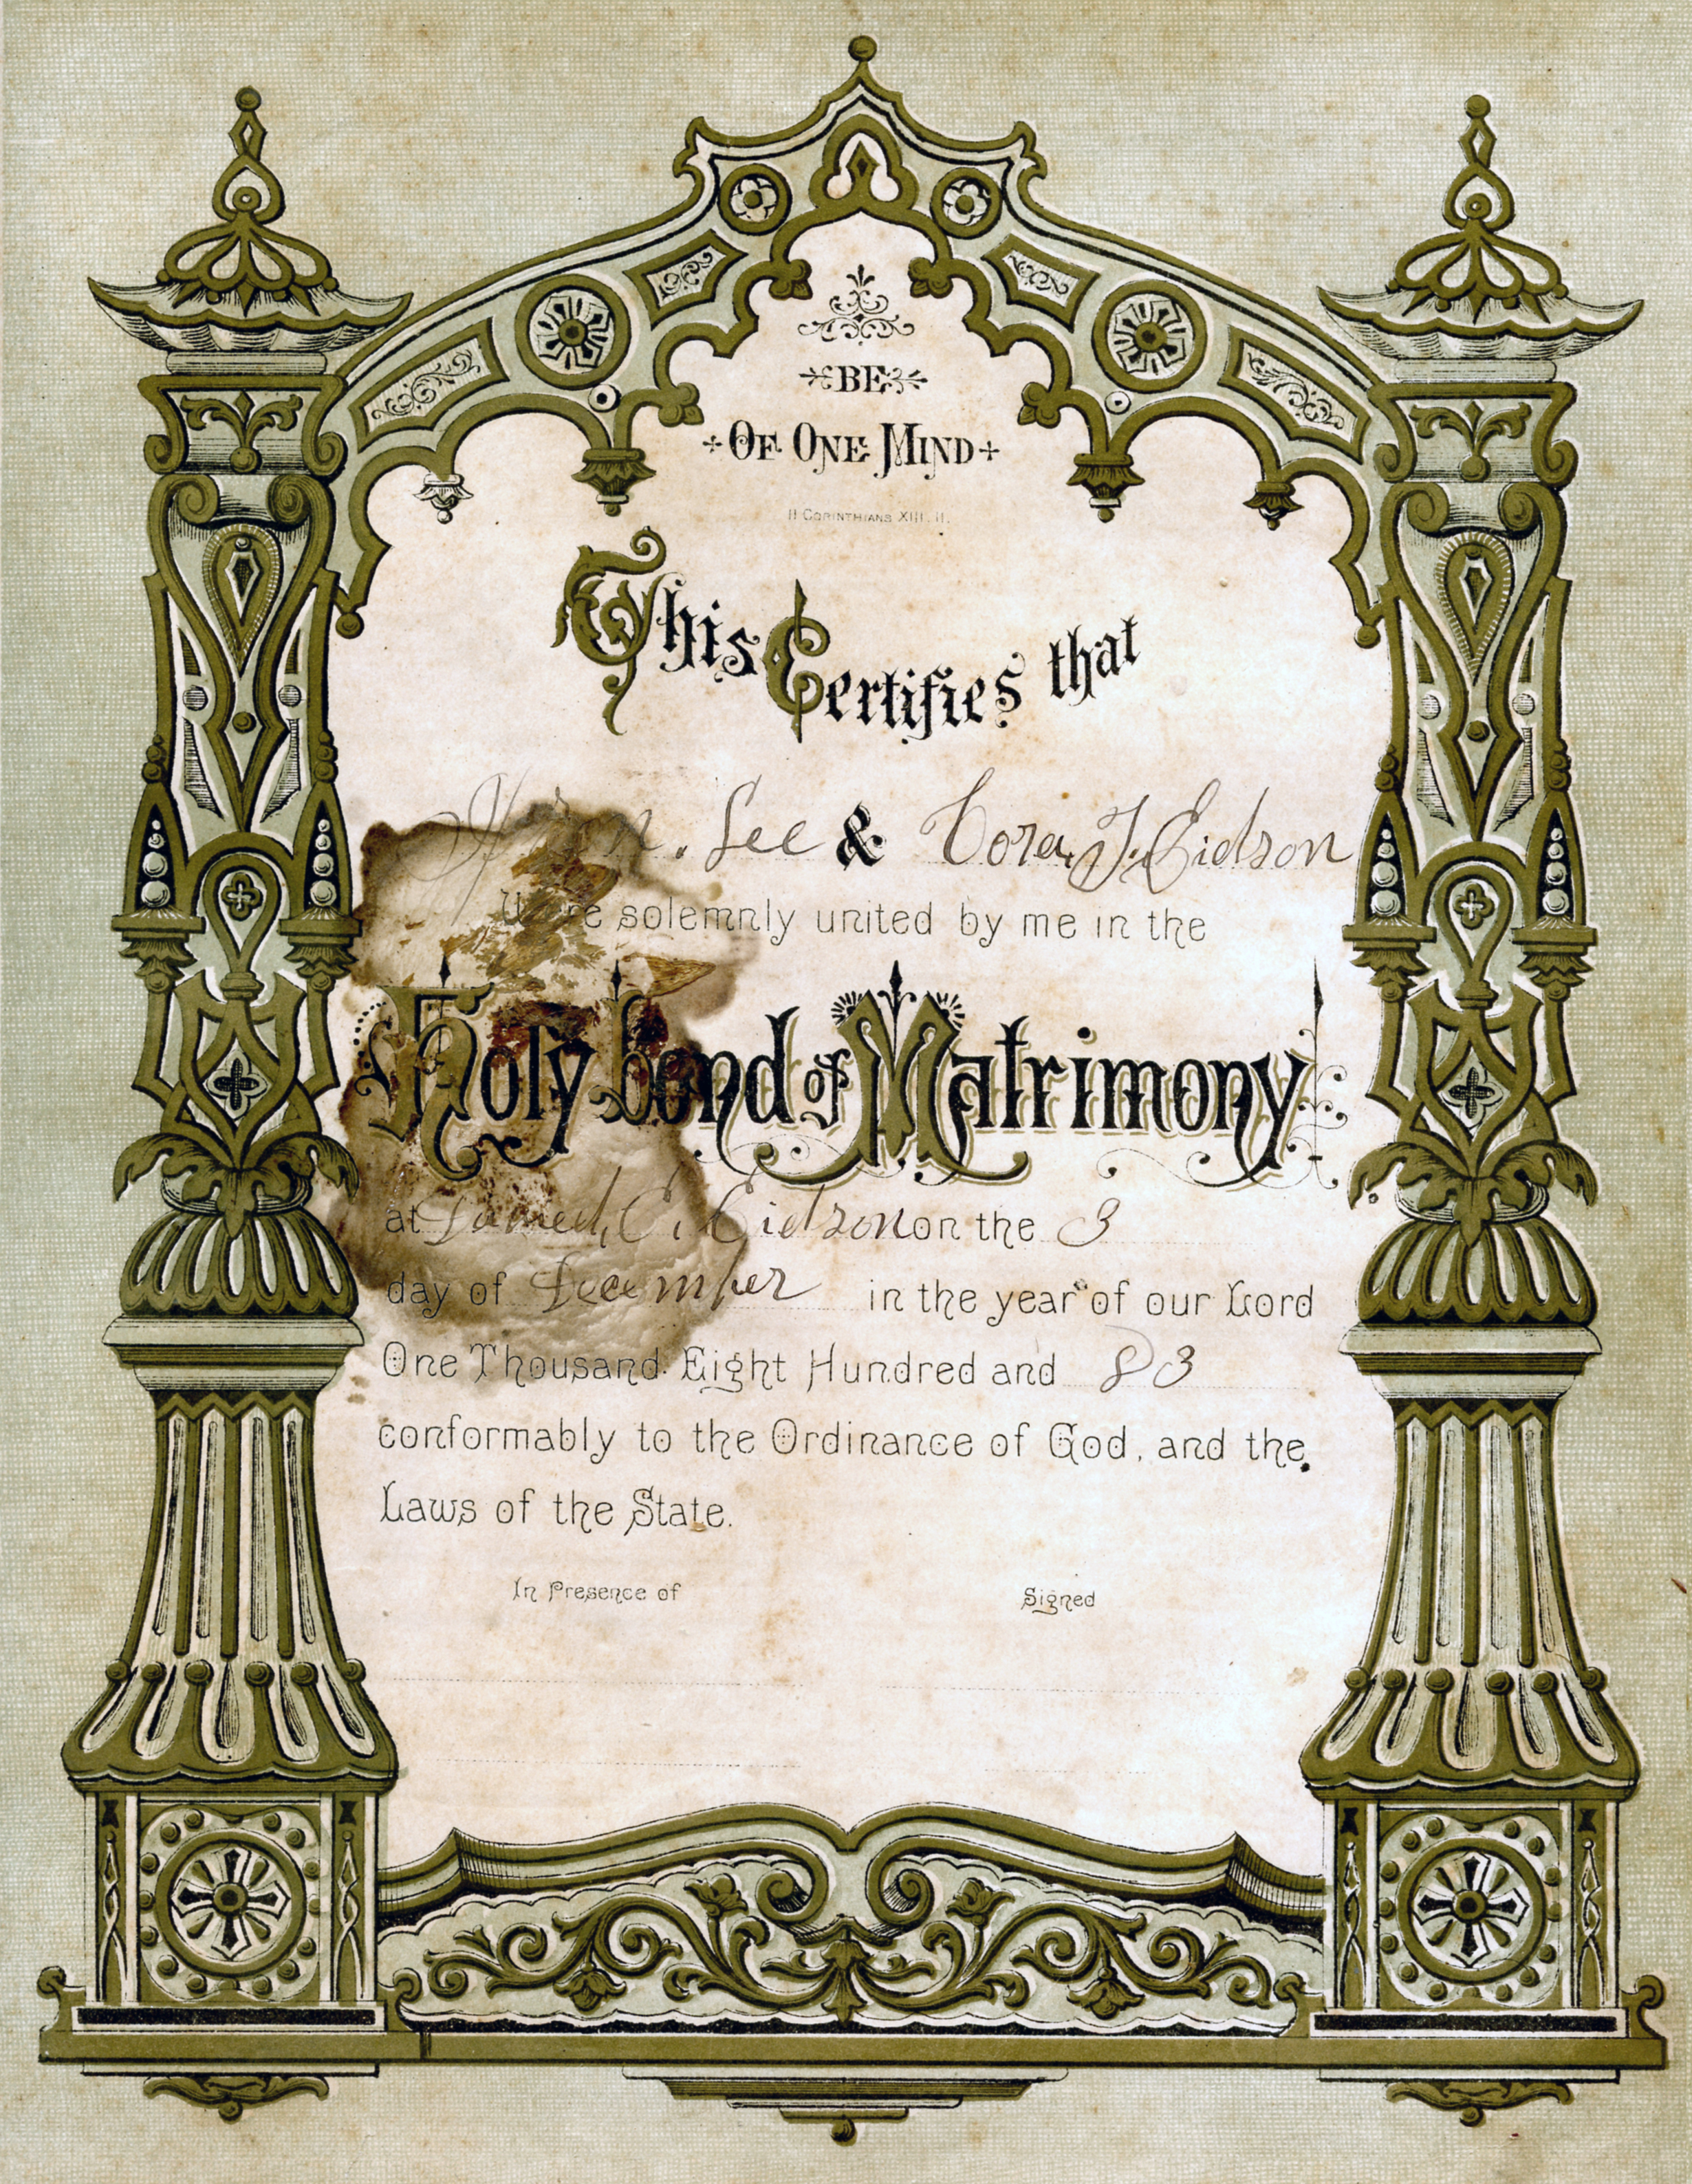 BE
OF ONE MIND
II CORINTHIANS XIII. II.
This Certifies that
Lee & Cora J. Eidson
Were solemnly united by me in the
Holy bond of Matrimony
at C. Eidson on the 3
day of December in the year of our Lord
One Thousand Eight Hundred and 83
conformably to the Ordinance of God, and the
Laws of the State.
In Presence of Signed